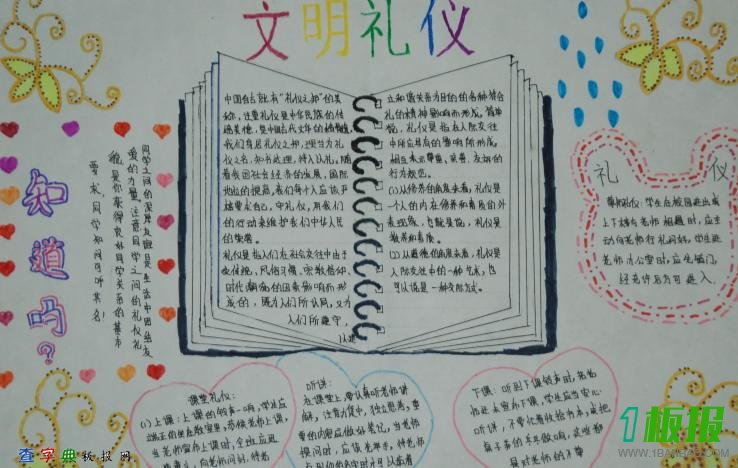 文明礼仪
中国自古就有"礼仪之邦"的美
称，注重礼仪是中华民族的传
统美德，是中国古代文年的精髓
我们身居礼仪之邦，理应为礼
仪之名，知书达理，待人以礼，随
着我国社会经济的发展，国际
地位的提高，我们每个人应该严
格要求自己，守礼仪，用我们
的行动来维护我们中华人民
的荣誉。
礼仪是指人们在社会交往中由于
受传统，风俗习惯，宗教信仰，
时代潮流的因素影响而形
成的，既为人们所认同，又为
人们所遵守，
以建
立和谐关系为目的的各种符合
礼的精神要求而形成。简单
说，礼仪是指在人际交往
中所应具有的
相互表示尊重，友好的
行为规范。
(1)从修养的角度来看，礼仪是
一个人的内在修养和素质的外
在表现，也就是说，礼仪是
教养和素质。
(2)从道德的角度来看，礼仪是
人际交往中的一种艺术，也
可以说是一种交际方式。
知道吗?
同学之间的深厚友谊是生活中团结友
爱的力量，注意同学之间的礼仪礼
貌，是你获得良好同学关系的基本
要求，同学知间可呼其名!
礼仪
尊师礼仪：学生在校园进出或
上下楼与老师相遇时，应主
动向老师行礼问好，学生进
老师办公室时，应先敲门，
经允许后方可进入.
课堂礼仪：
(1)上课：上课的铃声一响，学生应
端正的坐在教室里，恭候老师上课，
当老师宣布上课时，全班应迅
向老师问好，待老
听讲：
在课堂上，要认真听老师讲
解，注意力集中，独立思考，重
要的内容应做好笔记，当老师
提问时，应该先举手，待老师
下课：听到下课铃声时，若老
师还未宣布下课，学生应当安心
听讲，不要忙着收拾书本，或把
桌子弄的乒乓做响，这些都
是对老师的不尊
1板报
WWW.1BANBAO.COM
查字典板报网